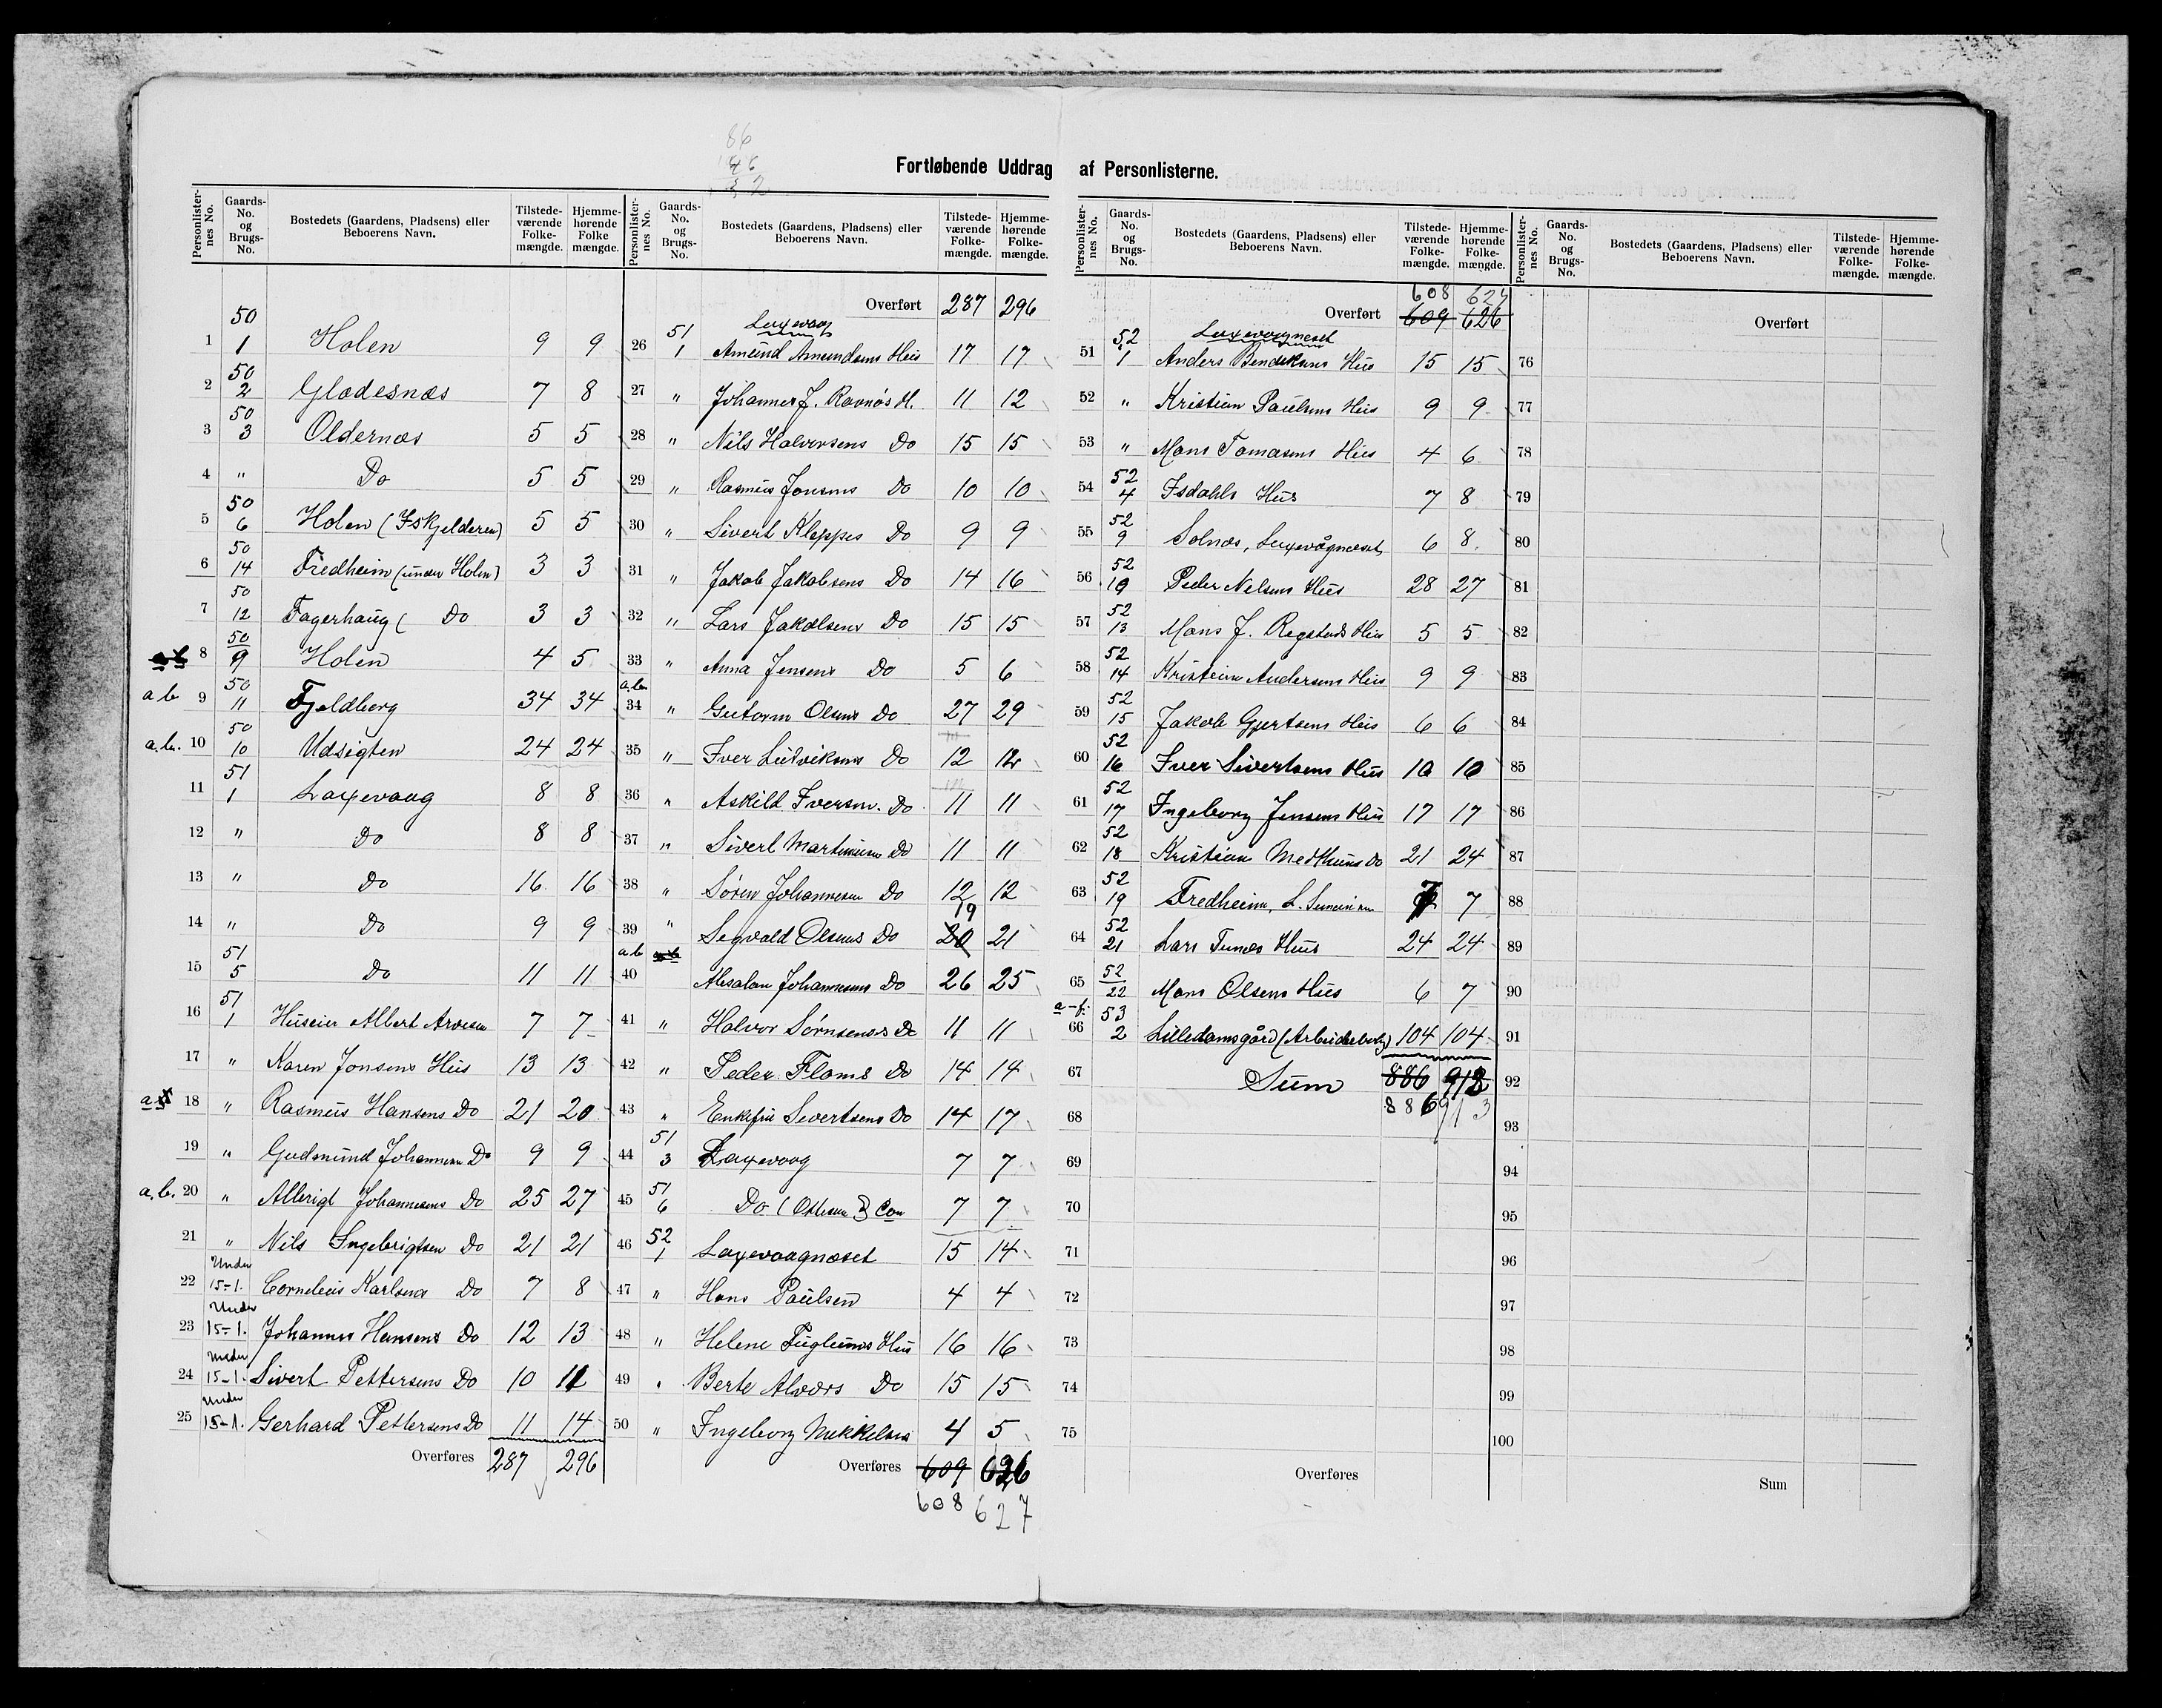 86
46
32
Fortløbende Uddrag af Personlisterne.
Personlisternes No. Gaards-No. og Brugs-No. Bostedets (Gaardens, Pladsens) eller Beboerens Navn. Tilstedeværende Folkemængde. Hjemmehørende Folke mængde.
1 50/1 Holen 9 9
2 50/2 Gladesnæs 7 8
3 50/3 Oldernæs 5 5
4 " Do 5 5
5 50/6 Holen (Iskjelderen) 5 5
6 50/14 Fredheim (under Holen) 3 3
7 50/12 Fagerhaug ( Do 3 3
8 50/9 Holen 4 5
a b 9 50/11 Fjeldberg 34 34
a.b. 10 50/10 Udsigten 24 24
11 51/1 Laxevaag 8 8
12 " Do 8 8
13 " Do 16 16
14 " Do 9 9
15 51/5 Do 11 11
16 51/1 Huseier Albert Arvesen 7 7
17 " Karen Jonsens Hus 13 13
18 " Rasmus Hansens Do 21 20
19 " Gudmund Johannesen Do 9 9
a.b. 20 " Albrigt Johannesens Do 25 27
21 " Nils Ingebrigtsen Do 21 21
22 Under 15-1. Cornelius Karlsens Do 7 8
23 Under 15-1. Johannes Hansens Do 12 13
24 Under 15-1. Sivert Pettersens Do 10 11
25 Under 15-1. Gerhard Pettersens Do 11 14
Overføres 287 296
Personlisternes No. Gaards-No. og Brugs-No. Bostedets (Gaardens, Pladsens) eller Beboerens Navn. Tilstedeværende Folkemængde. Hjemmehørende Folkemængde.
Overført 287 296
Laxevaag
26 51/1 Amund Amundsens Hus 17 17
27 " Johannes J. Ravnøs H. 11 12
28 " Nils Halvorsens Do 15 15
29 " Rasmus Jonsens Do 10 10
30 " Sivert Kleppes Do 9 9
31 " Jakob Jakobsens Do 14 16
32 " Lars Jakobsens Do 15 15
33 " Anna Jensens Do 5 6
a.b. 34 " Guttorm Olsens Do 27 29
35 " Iver Ludviksens Do 12 12
36 " Askild Iversen. Do 11 11
37 " Sivert Martinusen Do 11 11
38 " Søren Johannesen Do 12 12
39 " Segvald Olsens Do 20 19 21
a b 40 Absalon Johannesens Do 26 25
41 " Halvor Sørnsens Do 11 11
42 " Peder Flams Do 14 14
43 " Enkefru Sivertsens Do 14 17
44 51/3 Laxevaag 7 7
45 51/6 Do (Ottesen & Con 7 7
46 52/1 Laxevaagnæset 15 14
47 " Hans Paulsen 4 4
48 " Helene Fuglunds Hus 16 16
49 " Berte Alvers Do 15 15
50 " Ingeborg Mikkelsens 4 5
Overføres 609 626
608 627
Personlisternes No. Gaards-No. og Brugs-No. Bostedets (Gaardens, Pladsens) eller Beboerens Navn. Tilstedeværende Folkemængde. Hjemmehørende Folkemængde.
608 627
Overført 609 626
Laxevaagnæset
51 52/1 Anders Bendiksens Hus 15 15
52 " Kristian Paulsens Hus 9 9
53 " Mons Tomasens Hus 4 6
54 52/4 Isdahls Hus 7 8
55 52/9 Solnæs, Laxevågnæset 6 8
56 52/10 Peder Nelsens Hus 28 27
57 52/13 Mons J. Hus 5 5
58 52/14 Kristian Andersens Hus 9 9
59 52/15 Jakob Gjertsens Hus 6 6
60 52/16 Iver Sivertsens Hus 10 10
61 52/17 Ingeborg Jensens Hus 17 17
62 52/18 Kristian Medhus Do 21 24
63 52/19 Fredheim, L. 7 7
64 52/21 Lars Tunes Hus 24 24
65 52/22 Mons Olsens Hus 6 7
a-f. 66 53/2 Lilledamsgård (Arbeiderbolig) 104 104
67 Sum 886 912
68 886 913
69
70
71
72
73
74
75
Overføres
Personlisternes No. Gaards-No. og Brugs-No. Bostedets (Gaardens, Pladsens) eller Beboerens Navn. Tilstedeværende Folkemængde. Hjemmehørende Folkemængde.
Overført
76
77
78
79
80
81
82
83
84
85
86
87
88
89
90
91
92
93
94
95
96
97
98
99
100
Sum